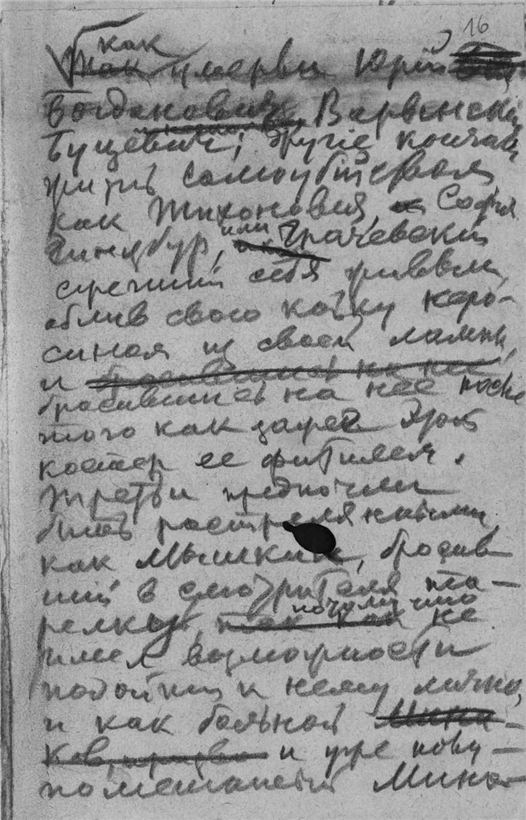 16
как
умерли Юрій
Богдановичъ, Варынскій,
Буцевичъ; другіе кончали
жизнь самоубійствомъ
как Тихоновичъ, Софья
Гинсбург, или Грачевскій
сжегшій себя живымъ,
облив свою койку керо-
сином из своей лампы,
и
бросившись на нее после
того как зажег этот
костер ее фитилем.
Третьи предпочли
быть расстрелянными,
как Мышкин, бросив-
ший в смотрителя та-
релку, потому что не
имел возможности
подойти к нему лично,
и как больной
и уже полу-
помешанный Мина-